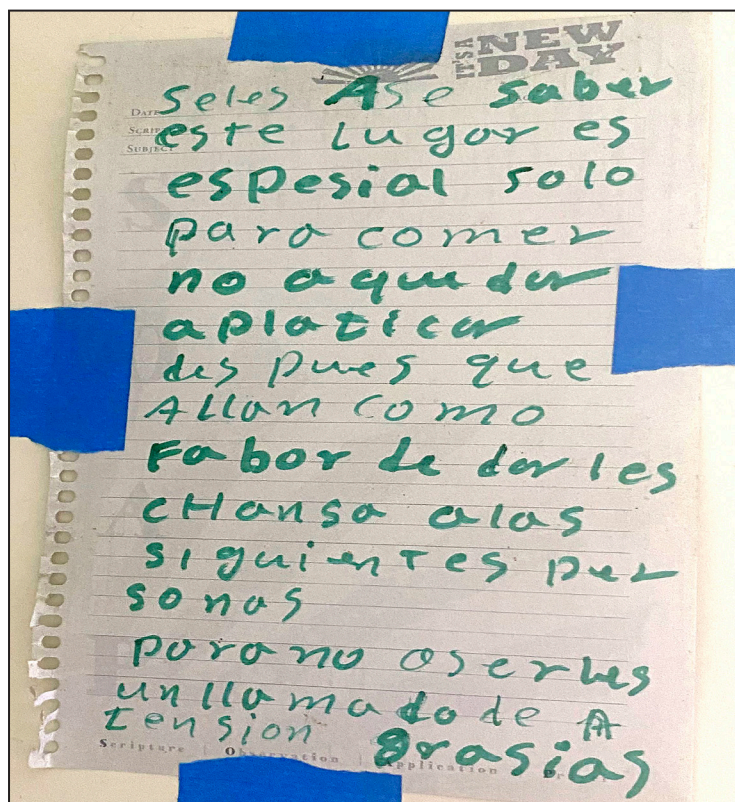 IT'S A NEW DAY
DATE
Seles Ase saber
SUBJECT
este lugar es
espesial solo
para comer
no a quedar
a platicar
des pues que
Allan como
Fabor de dar les
cHansa alas
siguientes per
sonas
para no aserles
un llamado de A
tension grasias
Scripture | Observation | Application | Pr